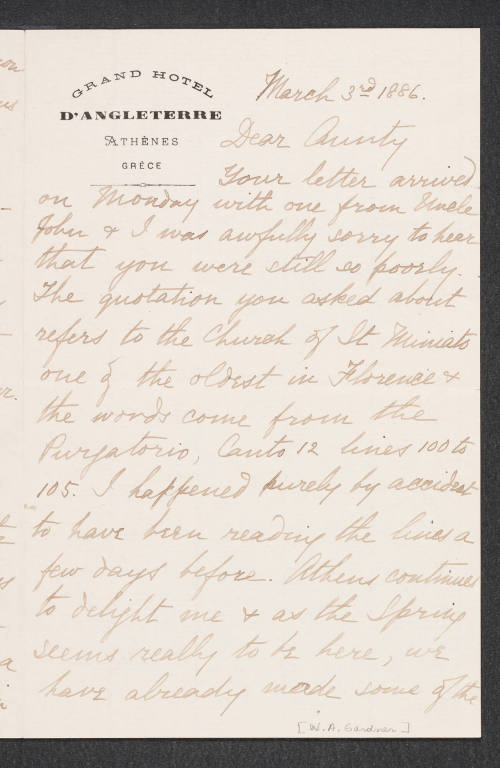 GRAND HOTEL
D'ANGLETERRE
ATHÈNES
GRÈCE
March 3rd 1886.
Dear Aunty
Your letter arrived
on Monday with one from Uncle
John & I was awfully sorry to hear
that you were still so poorly.
The quotation you asked about
refers to the Church of St Miniato
one of the oldest in Florence &
the words come from the
Purgatorio, Canto 12 lines 100 to
105. I happened purely by accident
to have been reading the lines a
few days before. Athens continues
to delight me & as the Spring
seems really to be here, we
have already made some of the
[W.A. Gardner]